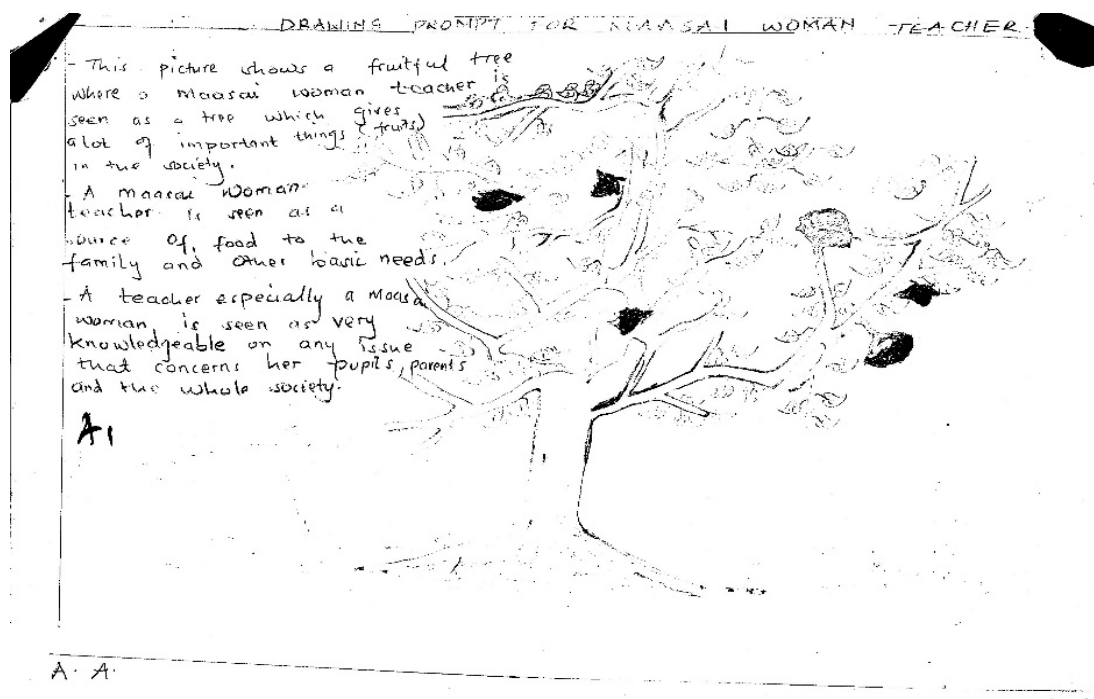 DRAWING PROMPT FOR MAASAI WOMAN TEACHER
- This picture shows a fruitful tree
where a Maasai woman teacher is
seen as a tree which gives
alot of important things (fruits)
in the society.
- A maasai woman
teacher is seen as a
source of, food to the
family and other basic needs.
- A teacher especially a Maasai
woman, is seen as very
knowledgeable on any issue
that concerns her pupils, parents
and the whole society.
A1
A. A.